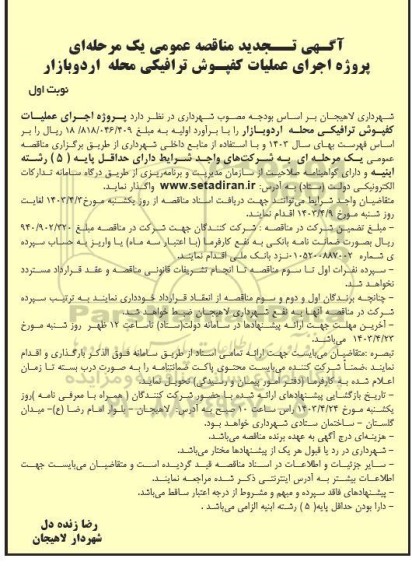 آگهی تـــجدید مناقصه عمومی یک مرحله‌ای
پروژه اجرای عملیات کفپـوش ترافیکی محله اردوبازار
نوبت اول
شهرداری لاهیجان بر اساس بودجه مصوب شهرداری در نظر دارد پـروژه اجرای عملیـات
کفپوش ترافیکـی محلـه اردوبـازار را با برآورد اولیه به مبلغ ۱۸/۸۱۸/۰۴۶/۴۰۹ ریال را بر
اساس فهرست بهای سال ۱۴۰۳ و با استفاده از منابع داخلی شهرداری از طریق برگزاری مناقصه
عمومی یک مرحله ای به شرکت‌های واجد شرایط دارای حداقـل پایـه ( ۵ ) رشته
ابنیـه و دارای گواهینامه صلاحیت از سازمان مدیریت و برنامه‌ریزی از طریق درگاه سامانه تدارکات
الکترونیکی دولت (ستاد) بـه آدرس: www.setadiran.ir واگذار نماید.
متقاضیان واجد شرایط می‌توانند جهت دریافت اسناد مناقصه از روز یکشنبه مـورخ۱۴۰۳/۴/۳ لغایـت
روز شنبه مورخ ۱۴۰۳/۴/۹ اقدام نمایند.
- مبلغ تضمین شرکت در مناقصه : شرکت کنندگان جهت شرکت در مناقصه مبلغ ۹۴۰/۹۰۲/۳۲۰
ریال بصورت ضمانت نامه بانکـی به نفع کارفرما (با اعتبار سه ماه) یا واریز به حساب سپرده
ی شماره ۰۱۰۵۲۰۰۸۸۷۰۰۲ نزد بانک ملی اقدام نمایند.
- سپرده نفرات اول تا سوم مناقصه تا انجام تشریفات قانونی مناقصه و عقد قرارداد مسترد
نخواهد شد.
- چنانچه برندگان اول و دوم و سوم مناقصه از انعقاد قرارداد خودداری نمایند به ترتیب سپرده
شرکت در مناقصه آنها به نفع شهرداری لاهیجان ضبط خواهد شد.
- آخرین مهلت جهت ارائه پیشنهادها در سامانه دولت(ستاد) تا ساعت ۱۲ ظهر روز شنبه مورخ
۱۴۰۳/۴/۲۳ می‌باشد.
تبصره :متقاضیان می‌بایست جهت ارائه تمامی اسناد از طریق سامانه فوق الذکر بارگذاری و اقدام
نمایند ،ضمناً شرکت کننده می‌بایست محتوی پاکت ضمانتنامه را به صورت درب بسته تا زمان
اعلام شده به کارفرما (دفتر امور پیمان و رسیدگی) تحویل نمایند.
- تاریخ بازگشایی پیشنهادهای ارائه شده با حضور شرکت کنندگان ( همراه با معرفی نامه )روز
یکشنبه مورخ ۱۴۰۳/۴/۲۴ راس ساعت ۱۰ صبح به آدرس: لاهیجان – بلوار امام رضا (ع)– میدان
گلستان – ساختمان ستادی شهرداری خواهد بود.
- هزینه‌ای درج آگهی به عهده برنده مناقصه می‌باشد.
- شهرداری در رد یا قبول هر یک از پیشنهادها مختار می‌باشد.
- سایر جزئیات و اطلاعات در اسناد مناقصه قید گردیده است و متقاضیان می‌بایست جهت
اطلاعات بیشتر به آدرس اینترنتی ذکر شده مراجعه نمایند.
- پیشنهادهای فاقد سپرده و مبهم و مشروط از درجه اعتبار ساقط می‌باشد.
- دارا بودن حداقل پایه( ۵ ) رشته ابنیه الزامی می‌باشد .
رضا زنده دل
شهردار لاهیجان